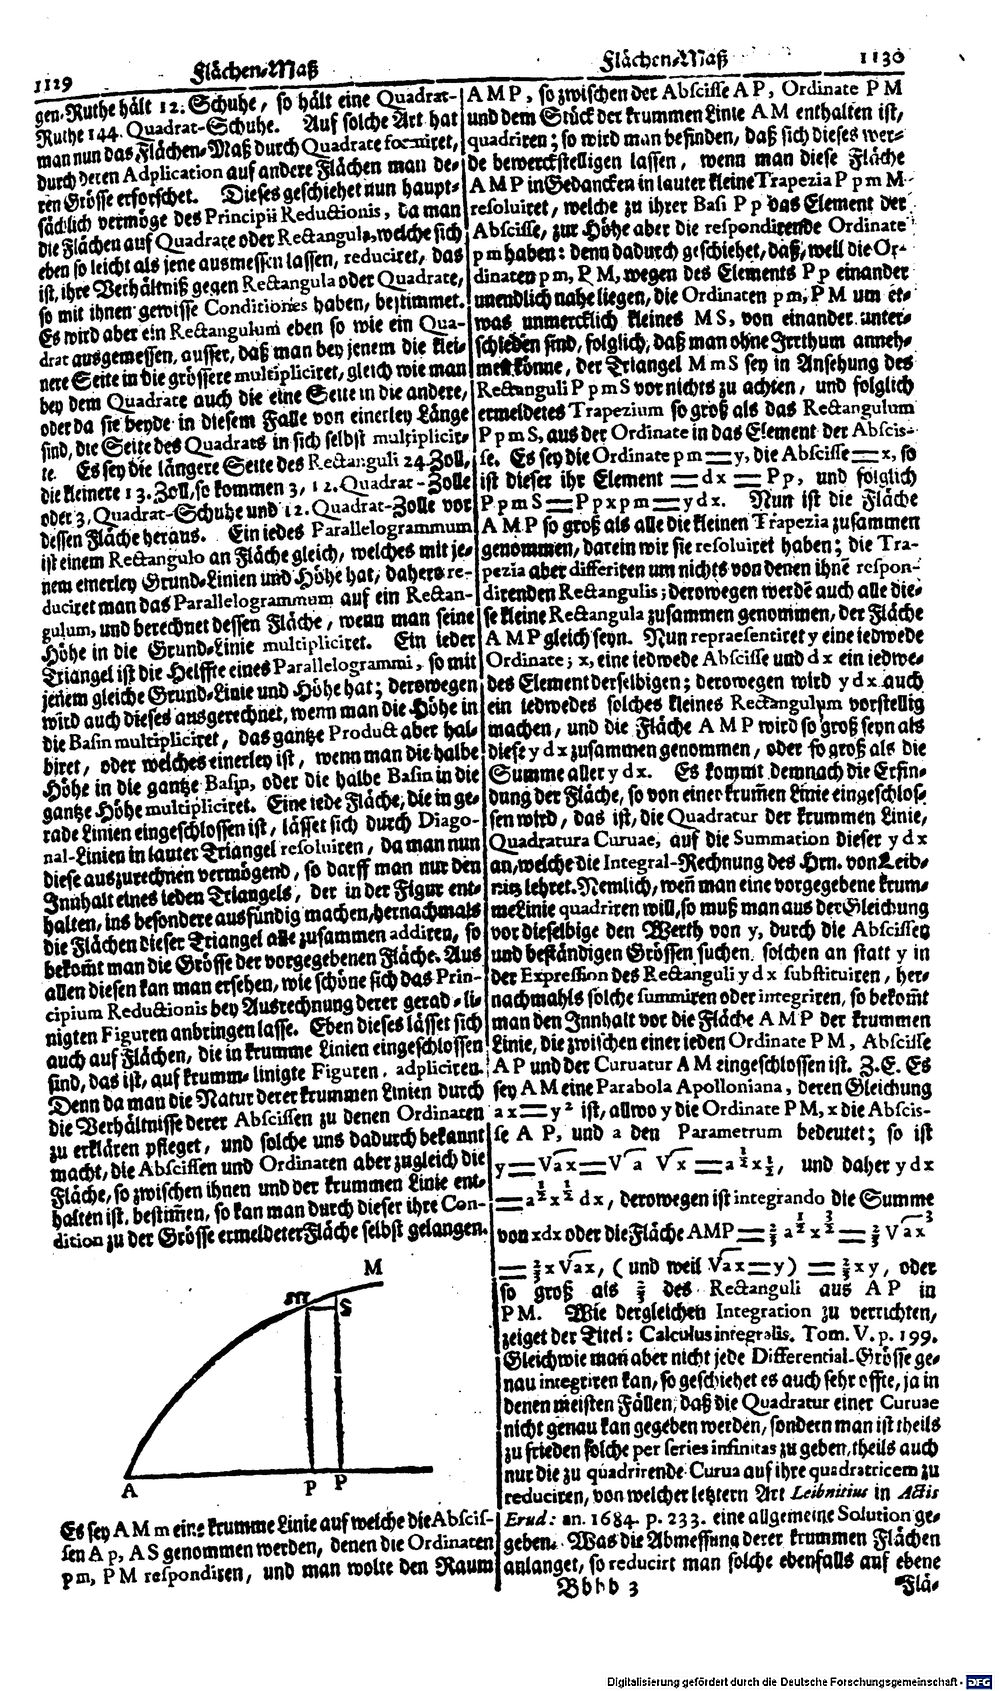 1129 Flächen-Maß
gen-Ruthe hält 12. Schuhe, so hält eine Quadrat-
Ruthe 144. Quadrat-Schuhe. Auf solche Art hat
man nun das Flächen-Maß durch Quadrate formiret,
durch deren Adplication auf andere Flächen man de-
ren Grösse erforschet. Dieses geschiehet nun haupt-
sächlich vermöge des Principii Reductionis, da man
die Flächen auf Quadrate oder Rectangula, welche sich
eben so leicht als jene ausmessen lassen, reduciret, das
ist, ihre Verhältniß gegen Rectangula oder Quadrate,
so mit ihnen gewisse Conditiones haben, bestimmet.
Es wird aber ein Rectangulum eben so wie ein Qua-
drat ausgemessen, ausser, daß man bey jenem die klei-
nere Seite in die grössere multipliciret, gleich wie man
bey dem Quadrate auch die eine Seite in die andere,
oder da sie beyde in diesem Falle von einerley Länge
sind, die Seite des Quadrats in sich selbst multiplicir-
te. Es sey die längere Seite des Rectanguli 24 Zoll,
die kleinere 13. Zoll, so kommen 3, 12. Quadrat-Zolle
oder 3. Quadrat-Schuhe und 12. Quadrat-Zolle vor
dessen Fläche heraus. Ein iedes Parallelogrammum
ist einem Rectangulo an Fläche gleich, welches mit je-
nem einerley Grund-Linien und Höhe hat, dahero re-
duciret man das Parallelogrammum auf ein Rectan-
gulum, und berechnet dessen Fläche, wenn man seine
Höhe in die Grund-Linie multipliciret. Ein ieder
Triangel ist die Helffte eines Parallelogrammi, so mit
jenem gleiche Grund-Linie und Höhe hat; derowegen
wird auch dieses ausgerechnet, wenn man die Höhe in
die Basin multipliciret, das gantze Product aber hal-
biret, oder welches einerley ist, wenn man die halbe
Höhe in die gantze Basin, oder die halbe Basin in die
gantze Höhe multipliciret. Eine iede Fläche, die in ge-
rade Linien eingeschlossen ist, lässet sich durch Diago-
nal-Linien in lauter Triangel resoluiren, da man nun
diese auszurechnen vermögend, so darff man nur den
Innhalt eines ieden Triangels, der in der Figur ent-
halten, ins besondere ausfündig machen, hernachmals
die Flächen dieser Triangel alle zusammen addiren, so
bekom̃t man die Grösse der vorgegebenen Fläche. Aus
allen diesen kan man ersehen, wie schöne sich das Prin-
cipium Reductionis bey Ausrechnung derer gerad-li-
nigten Figuren anbringen lasse. Eben dieses lässet sich
auch auf Flächen, die in krumme Linien eingeschlossen
sind, das ist, auf krumm-linigte Figuren, adpliciren.
Denn da man die Natur derer krummen Linien durch
die Verhältnisse derer Abscissen zu denen Ordinaten
zu erklären pfleget, und solche uns dadurch bekannt
macht, die Abscissen und Ordinaten aber zugleich die
Fläche, so zwischen ihnen und der krummen Linie ent-
halten ist, bestim̃en, so kan man durch dieser ihre Con-
dition zu der Grösse ermeldeter Fläche selbst gelangen.
M
m
S
A
P
P
Es sey A M m eine krumme Linie auf welche die Abscis-
sen A p, A S genommen werden, denen die Ordinaten
p m, P M respondiren, und man wolte den Raum
Flächen-Maß 1130
A M P, so zwischen der Abscisse A P, Ordinate P M
und dem Stück der krummen Linie AM enthalten ist,
quadriren; so wird man befinden, daß sich dieses wer-
de bewerckstelligen lassen, wenn man diese Fläche
A M P in Gedancken in lauter kleine Trapezia P p m M
resoluiret, welche zu ihrer Basi P p das Element der
Abscisse, zur Höhe aber die respondirende Ordinate
p m haben: denn dadurch geschiehet, daß, weil die Or-
dinaten p m, P M, wegen des Elements P p einander
unendlich nahe liegen, die Ordinaten p m, P M um et-
was unmercklich kleines M S, von einander unter-
schieden sind, folglich, daß man ohne Irrthum anneh-
men könne, der Triangel M m S sey in Ansehung des
Rectanguli P p m S vor nichts zu achten, und folglich
ermeldetes Trapezium so groß als das Rectangulum
P p m S, aus der Ordinate in das Element der Abscis-
se. Es sey die Ordinate p m = y, die Abscisse = x, so
ist dieser ihr Element = dx = P p, und folglich
P p m S = P p x p m = y d x. Nun ist die Fläche
A M P so groß als alle die kleinen Trapezia zusammen
genommen, darein wir sie resoluiret haben; die Tra-
pezia aber differiren um nichts von denen ihnē respon-
direnden Rectangulis; derowegen werdē auch alle die-
se kleine Rectangula zusammen genommen, der Fläche
A M P gleich seyn. Nun repraesentiret y eine iedwede
Ordinate; x, eine iedwede Abscisse und d x ein iedwe-
des Element derselbigen; derowegen wird y d x auch
ein iedwedes solches kleines Rectangulum vorstellig
machen, und die Fläche A M P wird so groß seyn als
diese y d x zusammen genommen, oder so groß als die
Summe aller y d x. Es kommt demnach die Erfin-
dung der Fläche, so von einer krum̃en Linie eingeschlos-
sen wird, das ist, die Quadratur der krummen Linie,
Quadratura Curuae, auf die Summation dieser y d x
an, welche die Integral-Rechnung des Hrn. von Leib-
nitz lehret. Nemlich, weñ man eine vorgegebene krum-
me Linie quadriren will, so muß man aus der Gleichung
vor dieselbige den Werth von y, durch die Abscissen
und beständigen Grössen suchen, solchen an statt y in
der Expression des Rectanguli y d x substituiren, her-
nachmahls solche summiren oder integriren, so bekom̃t
man den Innhalt vor die Fläche A M P der krummen
Linie, die zwischen einer ieden Ordinate P M, Abscisse
A P und der Curuatur A M eingeschlossen ist. Z. E. Es
sey A M eine Parabola Apolloniana, deren Gleichung
a x = y² ist, allwo y die Ordinate PM, x die Abscis-
se A P, und a den Parametrum bedeutet; so ist
y = √ax = √a √x = a½x½, und daher y d x
= a½x½ dx, derowegen ist integrando die Summe
von xdx oder die Fläche AMP = ⅔ a½x3/2 = ⅔ √ax³
= ⅔x√ax, (und weil √ax = y) = ⅔xy, oder
so groß als ⅔ des Rectanguli aus A P in
PM. Wie dergleichen Integration zu verrichten,
zeiget der Titel: Calculus integralis. Tom. V. p. 199.
Gleichwie man aber nicht jede Differential-Grösse ge-
nau integriren kan, so geschiehet es auch sehr offte, ja in
denen meisten Fällen, daß die Quadratur einer Curuae
nicht genau kan gegeben werden, sondern man ist theils
zu frieden solche per series infinitas zu geben, theils auch
nur die zu quadrirende Curua auf ihre quadratricem zu
reduciren, von welcher letztern Art Leibnitius in Actis
Erud: an. 1684. p. 233. eine allgemeine Solution ge-
geben. Was die Abmessung derer krummen Flächen
anlanget, so reducirt man solche ebenfalls auf ebene
Bbbb 3 Flä-
Digitalisierung gefördert durch die Deutsche Forschungsgemeinschaft - DFG